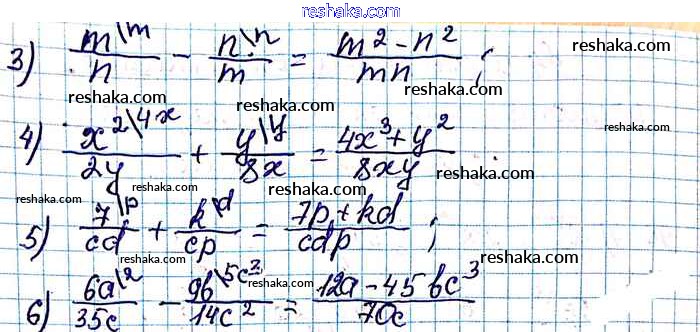 reshaka.com
3) m\m/n − n\n/m = (m² − n²)/mn ;
reshaka.com
reshaka.com reshaka.com reshaka.com
4) x²\4x/2y + y\y/8x = (4x³ + y²)/8xy
reshaka.com
reshaka.com reshaka.com reshaka.com
5) 7\p/cd + k\d/cp = (7p + kd)/cdp ;
reshaka.com
reshaka.com reshaka.com reshaka.com
6) 6a\2/35c − 9b\5c²/14c² = (12a − 45bc³)/70c
reshaka.com